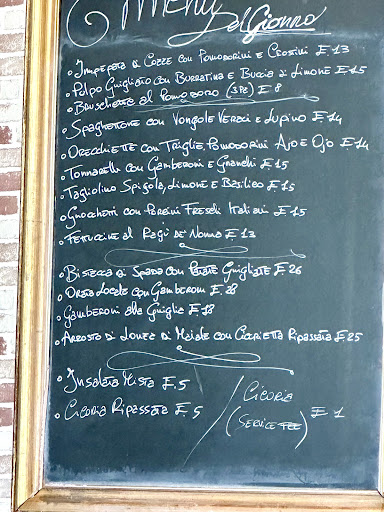 Menù
Del Giorno
• Impepata di Cozze con Pomodorini e Crostini £ 13
• Polpo Grigliato con Burratina e Buccia di Limone £ 15
• Bruschette al Pomodoro (3 Pz) £ 8
• Spaghettone con Vongole Veraci e Lupino £ 14
• Orecchiette con Triglie, Pomodorini Ajo e Ojo £ 14
• Tonnarelli con Gamberoni e Granelli £ 15
• Tagliolino Spigola, Limone e Basilico £ 15
• Gnocchetti con Porcini Freschi Italiani £ 15
• Fettuccine al Ragù de' Nonna £ 13
• Bistecca di Spada con Patate Grigliate £ 26
• Orata Locale con Gamberoni £ 28
• Gamberoni alla Griglia £ 18
• Arrosto di Lonza di Maiale con Cicorietta Ripassata £ 25
• Insalata Mista £ 5
• Cicoria Ripassata £ 5
/ Cicoria
(Service Fee) £ 1